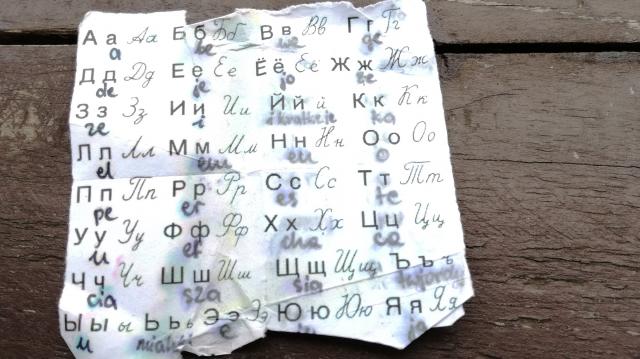 А а Аа Б б Бб В в Вв Г г Гг
a be we ge
Д д Дд Е е Ее Ё ё Ёё Ж ж Жж
de je jo że
З з Зз И и Ии Й й й К к Кк
ze i i kratkoje ka
Л л Лл М м Мм Н н Нн О о Оо
el em en o
П п Пп Р р Рр С с Сс Т т Тт
pe er es te
У у Уу Ф ф Фф Х х Хх Ц ц Цц
u ef cha ce
Ч ч Чч Ш ш Шш Щ щ Щщ Ъ ъ ъ
cia sza sia
Ы ы ы Ь ь ь Э э Ээ Ю ю Юю Я я Яя
e ju ja